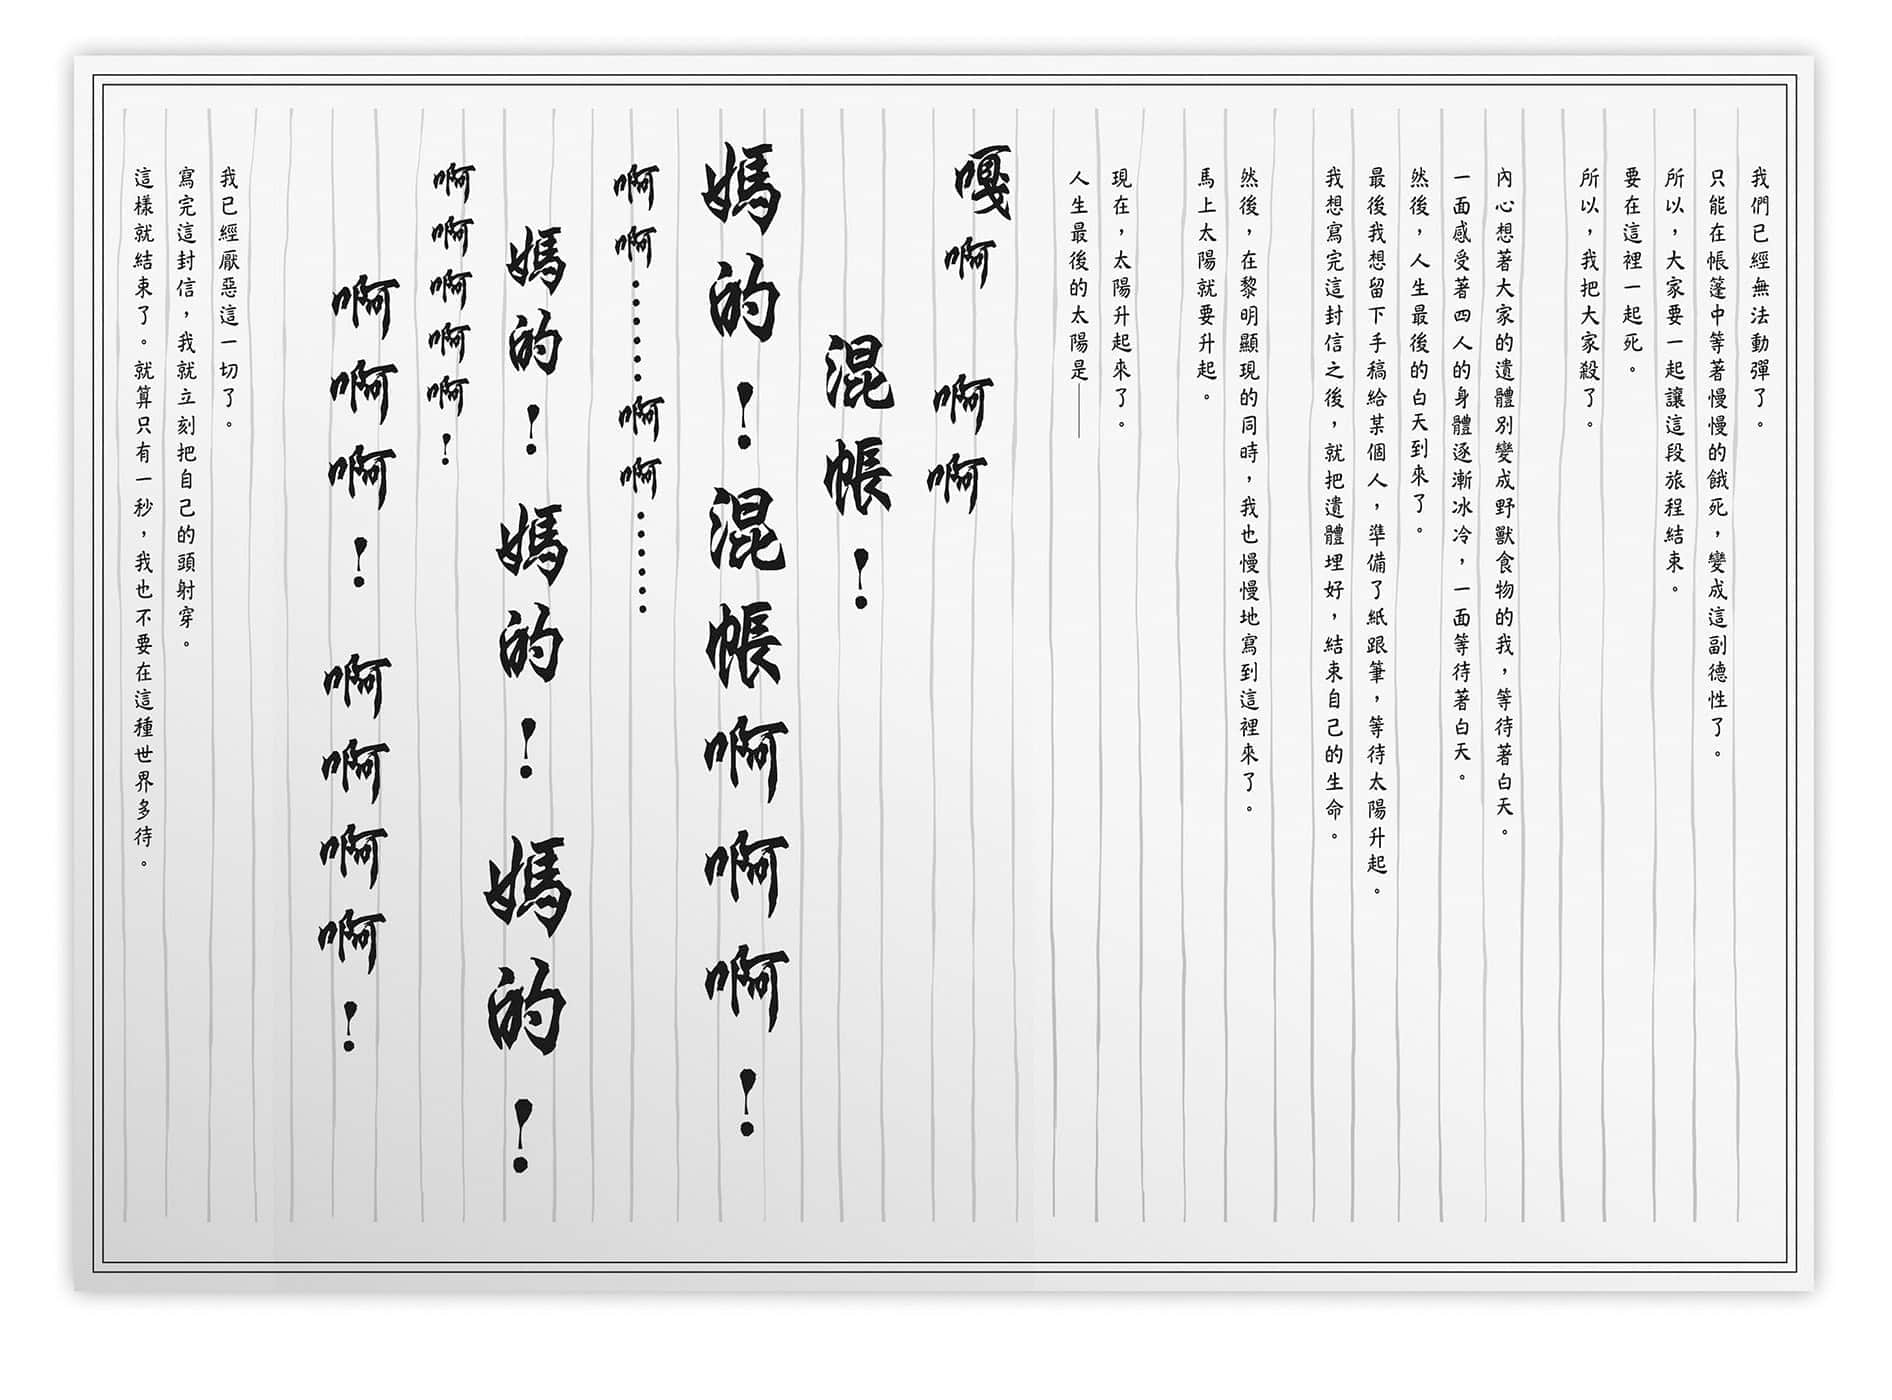 我們已經無法動彈了。
只能在帳篷中等著慢慢的餓死，變成這副德性了。
所以，大家要一起讓這段旅程結束。
要在這裡一起死。
所以，我把大家殺了。
內心想著大家的遺體別變成野獸食物的我，等待著白天。
一面感受著四人的身體逐漸冰冷，一面等待著白天。
然後，人生最後的白天到來了。
最後我想留下手稿給某個人，準備了紙跟筆，等待太陽升起。
我想寫完這封信之後，就把遺體埋好，結束自己的生命。
然後，在黎明顯現的同時，我也慢慢地寫到這裡來了。
馬上太陽就要升起。
現在，太陽升起來了。
人生最後的太陽是——
嘎啊　啊啊
混帳！
媽的！混帳啊啊啊！
啊啊……啊啊……
媽的！媽的！媽的！
啊啊啊啊啊！
啊啊啊！啊啊啊啊！
我已經厭惡這一切了。
寫完這封信，我就立刻把自己的頭射穿。
這樣就結束了。就算只有一秒，我也不要在這種世界多待。